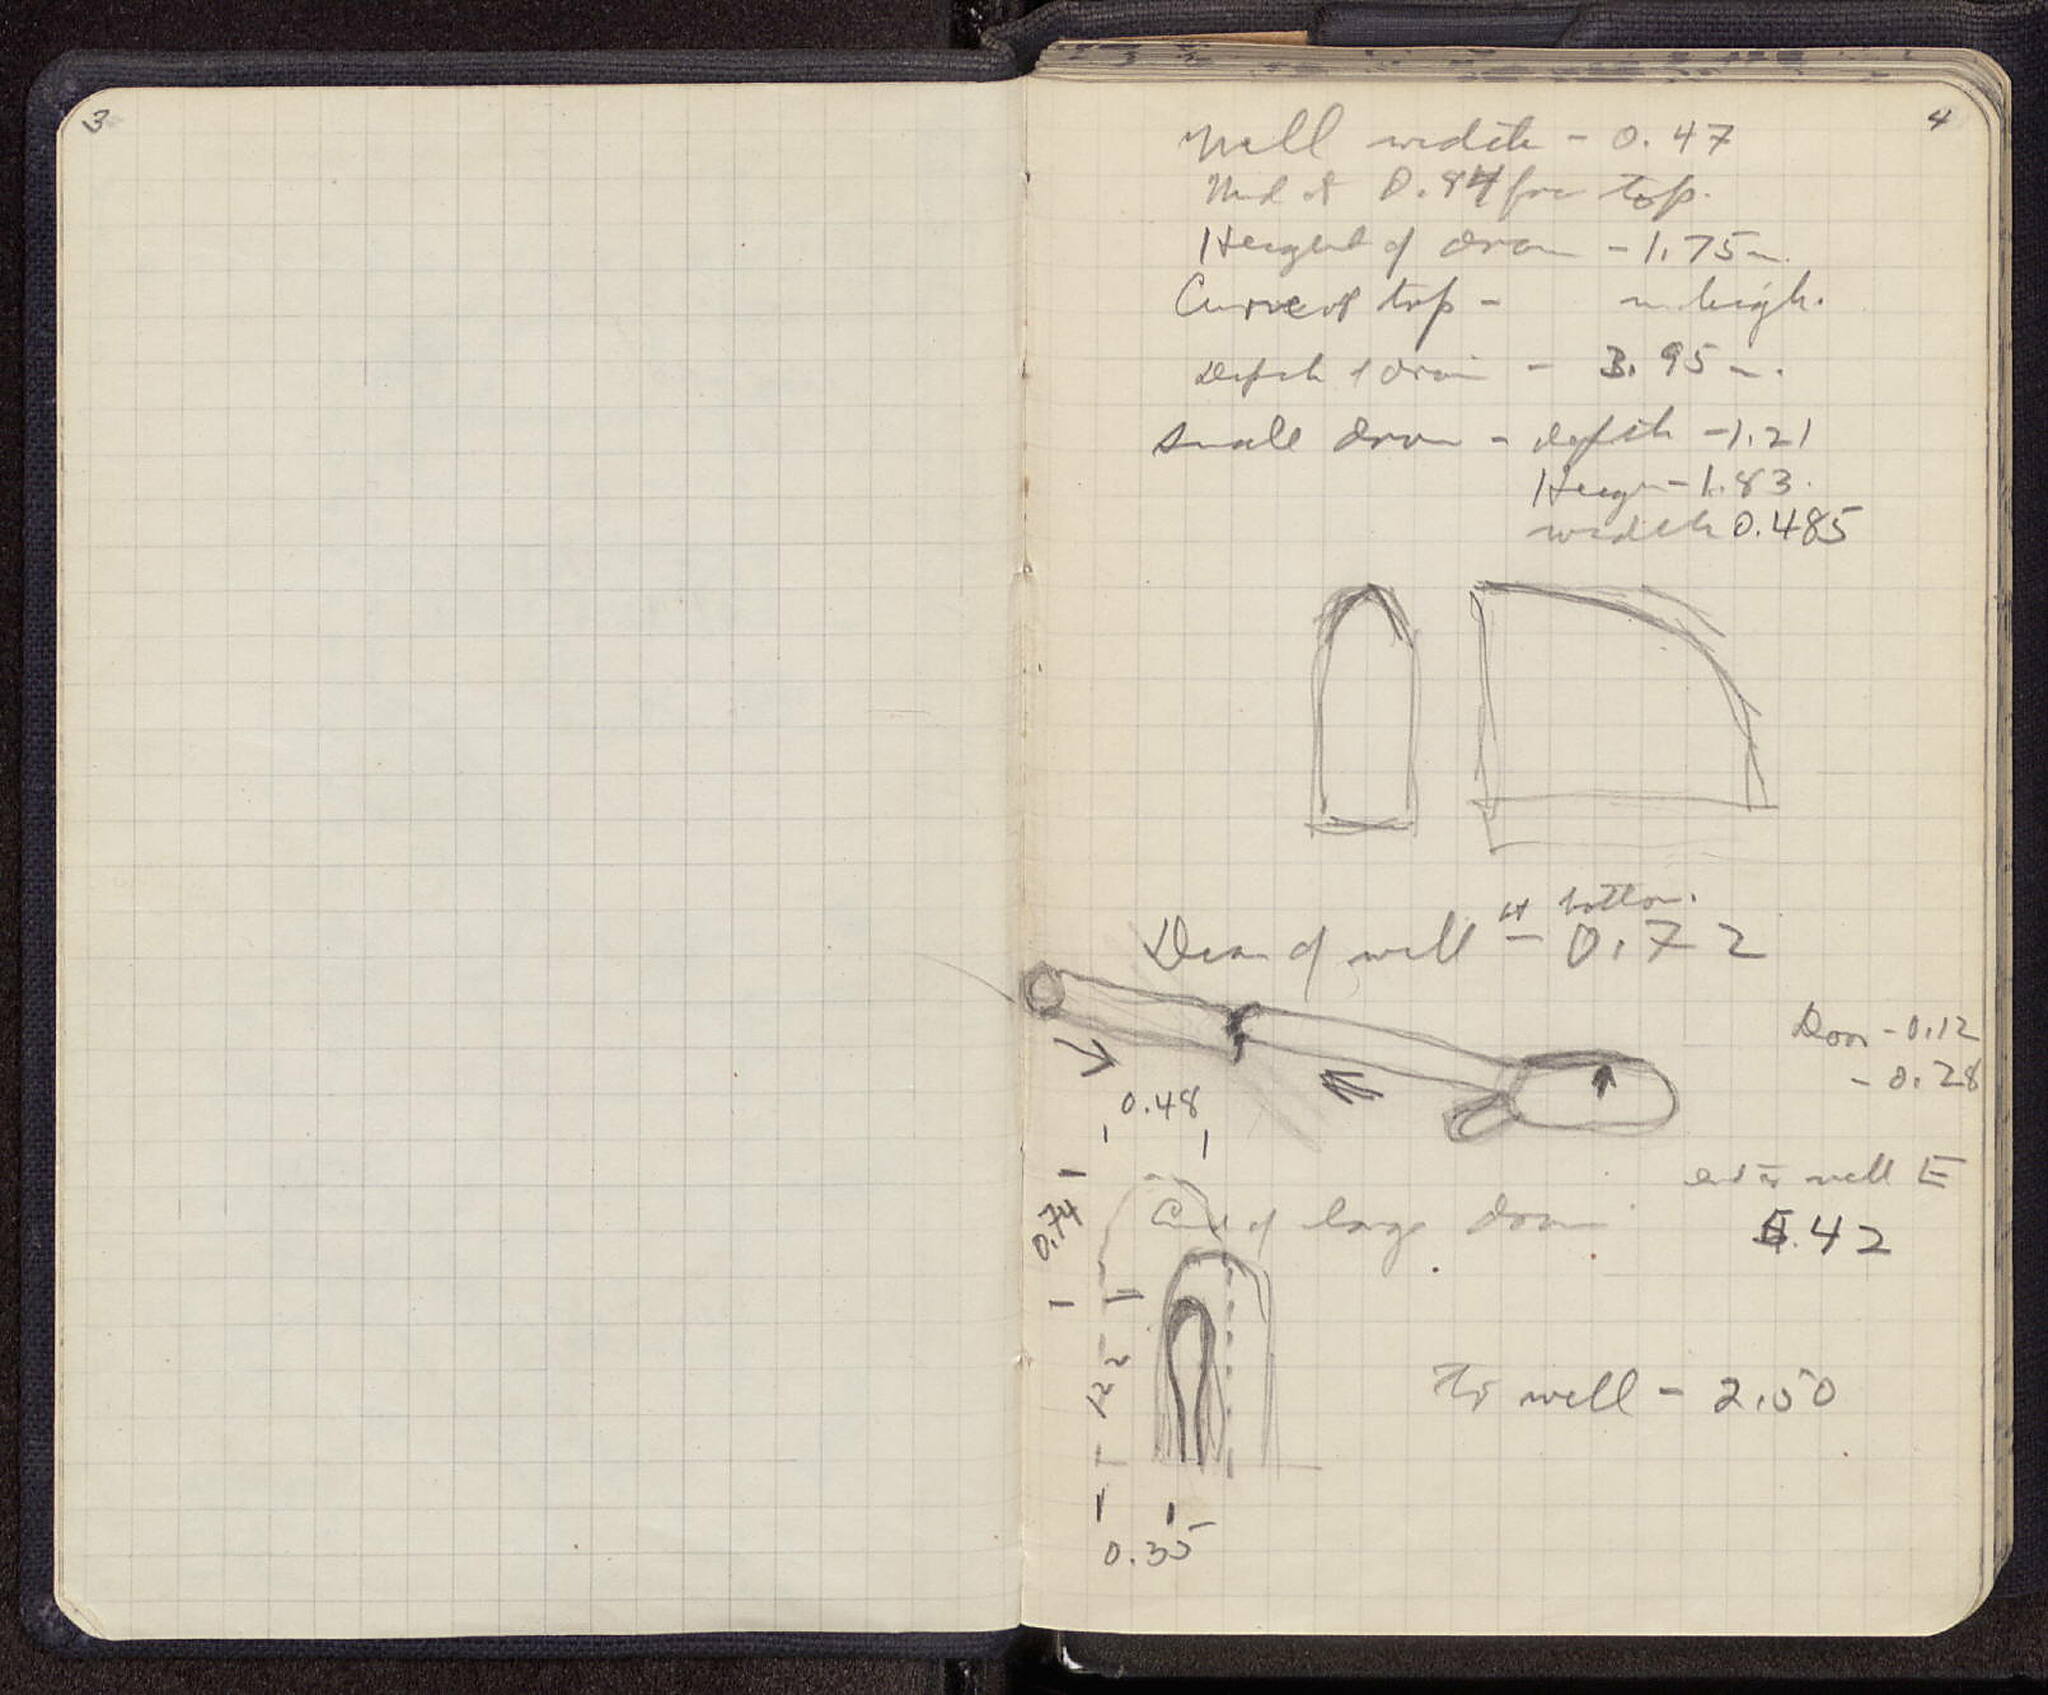 3
4
Well width - 0.47
Mid of 0.84 from top.
Height of drain - 1.75 m.
Curve of top - m high.
Depth of drain - 3.95 m.
Small drain - depth - 1.21
Height - 1.83.
width 0.485
at bottom.
Diam of well - 0.72
Door - 0.12
- 0.28
0.48
well E
0.74
End of large drain
.42
122
To well - 2.50
0.35